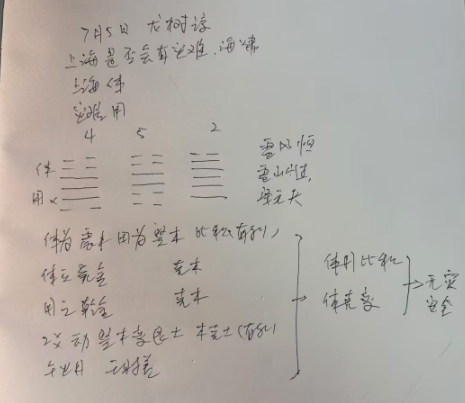 7月5日 龙树谆
上海是否会有灾难.海啸
上海 体
灾难 用
4 5 2
体 雷风恒
用 × 雷山小过
泽天夬
体为震木 用为巽木 比和(有利)
体互兑金 克木
用互乾金 克木
2爻动 巽木变艮土 木克土(有利)
体用比和
体克变
无灾
安全
午火月